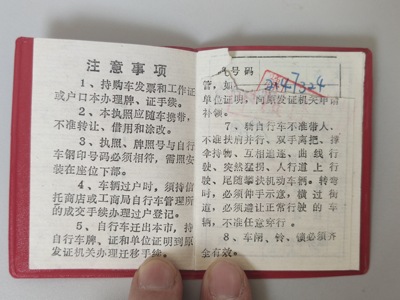 注意事项
1、持购车发票和工作证
或户口本办理牌、证手续。
2、本执照应随车携带，
不准转让、借用和涂改。
3、执照、牌照号与自行
车钢印号码必须相符，需照安
装在座位下部。
4、车辆过户时，须持信
托商店或工商局自行车管理所
的成交手续办理过户登记。
5、自行车迁出本市，持
自行车牌、证和单位证明到原
发证机关办理迁移手续。
牌号码
2147324
管，如
单位证明，向原发证机关申请
补领。
7、骑自行车不准带人、
不准扶肩并行、双手离把、
拿持物、互相追逐、曲线行
驶、突然猛拐、人行道上行
驶、尾随攀扶机动车辆。转弯
时，必须伸手示意，横过街
道，必须避让正常行驶的车
辆，不准任意穿行。
8、车闸、铃、锁必须齐
全有效。